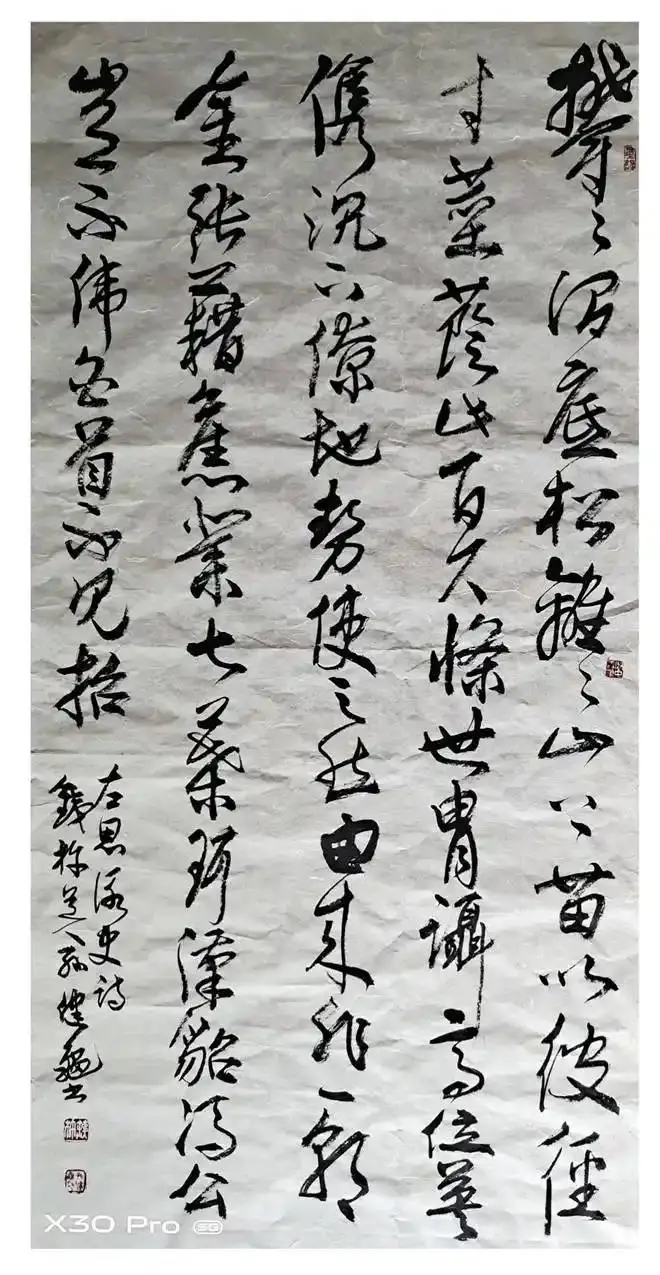 鬱々澗底松離々山上苗以彼徑
寸莖蔭此百尺條世胄躡高位英
儁沉下僚地勢使之然由來非一朝
金張藉舊業七葉珥漢貂馮公
豈不偉白首不見招
左思詠史詩
X30 Pro 5G